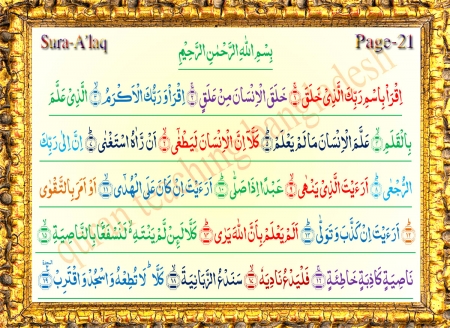 Sura-A'laq Page-21
بِسْمِ اللّٰهِ الرَّحْمٰنِ الرَّحِيْمِ
اِقْرَاْ بِاسْمِ رَبِّكَ الَّذِىْ خَلَقَ ۝١ خَلَقَ الْاِنْسَانَ مِنْ عَلَقٍ ۝٢ اِقْرَاْ وَرَبُّكَ الْاَكْرَمُ ۝٣ الَّذِىْ عَلَّمَ
بِالْقَلَمِ ۝٤ عَلَّمَ الْاِنْسَانَ مَا لَمْ يَعْلَمْ ۝٥ كَلَّآ اِنَّ الْاِنْسَانَ لَيَطْغٰٓى ۝٦ اَنْ رَّاٰهُ اسْتَغْنٰى ۝٧ اِنَّ اِلٰى رَبِّكَ
الرُّجْعٰى ۝٨ اَرَءَيْتَ الَّذِىْ يَنْهٰى ۝٩ عَبْدًا اِذَا صَلّٰى ۝١٠ اَرَءَيْتَ اِنْ كَانَ عَلَى الْهُدٰٓى ۝١١ اَوْ اَمَرَ بِالتَّقْوٰى
۝١٢ اَرَءَيْتَ اِنْ كَذَّبَ وَتَوَلّٰى ۝١٣ اَلَمْ يَعْلَمْ بِاَنَّ اللّٰهَ يَرٰى ۝١٤ كَلَّا لَئِنْ لَّمْ يَنْتَهِ ۙ لَنَسْفَعًۢا بِالنَّاصِيَةِ ۝١٥
نَاصِيَةٍ كَاذِبَةٍ خَاطِئَةٍ ۝١٦ فَلْيَدْعُ نَادِيَهٗ ۝١٧ سَنَدْعُ الزَّبَانِيَةَ ۝١٨ كَلَّا ؕ لَا تُطِعْهُ وَاسْجُدْ وَاقْتَرِبْ ۝١٩
quran teaching bangladesh